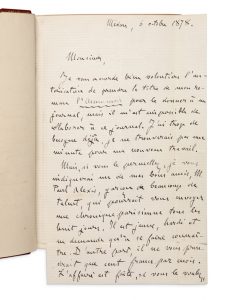 Médan, 6 octobre 1878.
Monsieur,
Je vous accorde bien volontiers l'au-
torisation de prendre la titre de mon ro-
man l'Assommoir pour le donner à un
journal, mais il m'est impossible de
collaborer à ce journal. J'ai trop de
besogne déjà, je ne trouverais pas une
minute pour un nouveau travail.
Mais, si vous le permettez, je vous
indiquerai un de mes bons amis, M.
Paul Alexis, garçon de beaucoup de
talent, qui pourrait vous envoyer
une chronique parisienne tous les
huit jours. Il est jeune, hardi et
ne demande qu'à se faire connaî-
tre. D'autre part, il ne vous pren-
drait que cent francs par mois.
Si l'affaire est faite, et vous le voulez